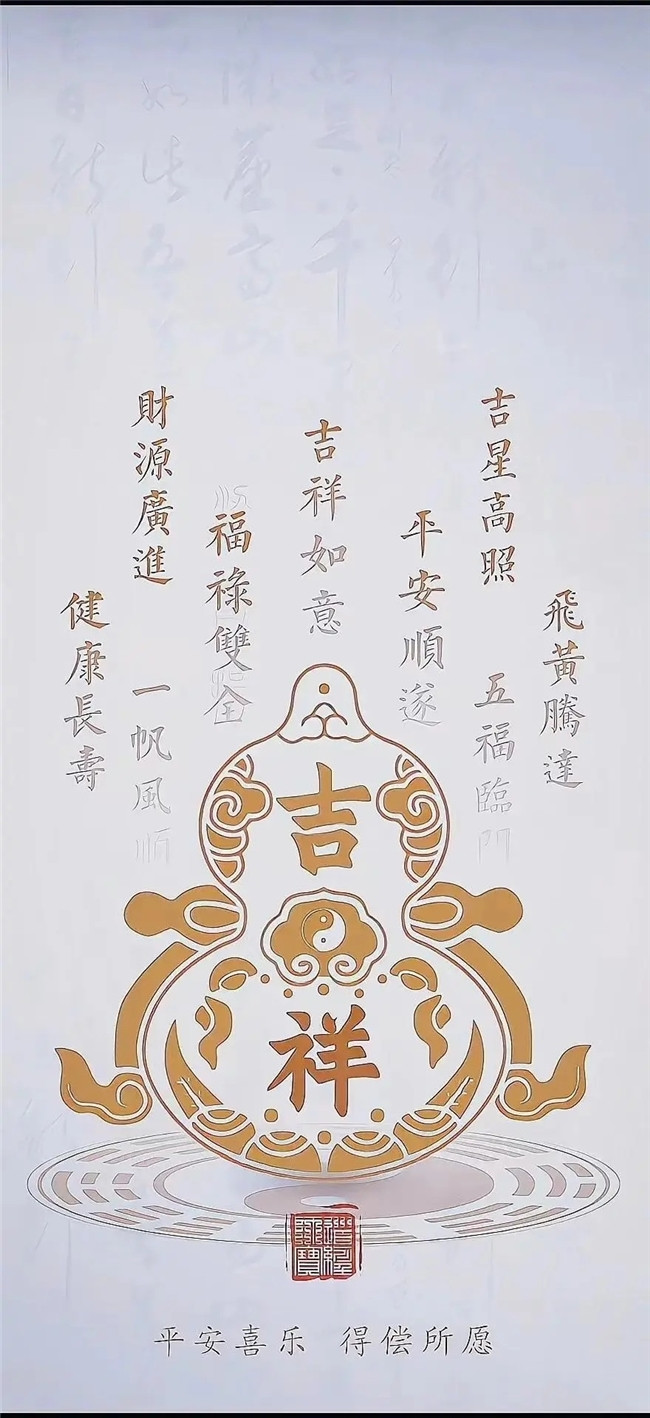 吉星高照
財源廣進
吉祥如意
平安順遂
福祿雙全
飛黃騰達
健康長壽
五福臨門
一帆風順
吉
祥
平安喜乐 得偿所愿